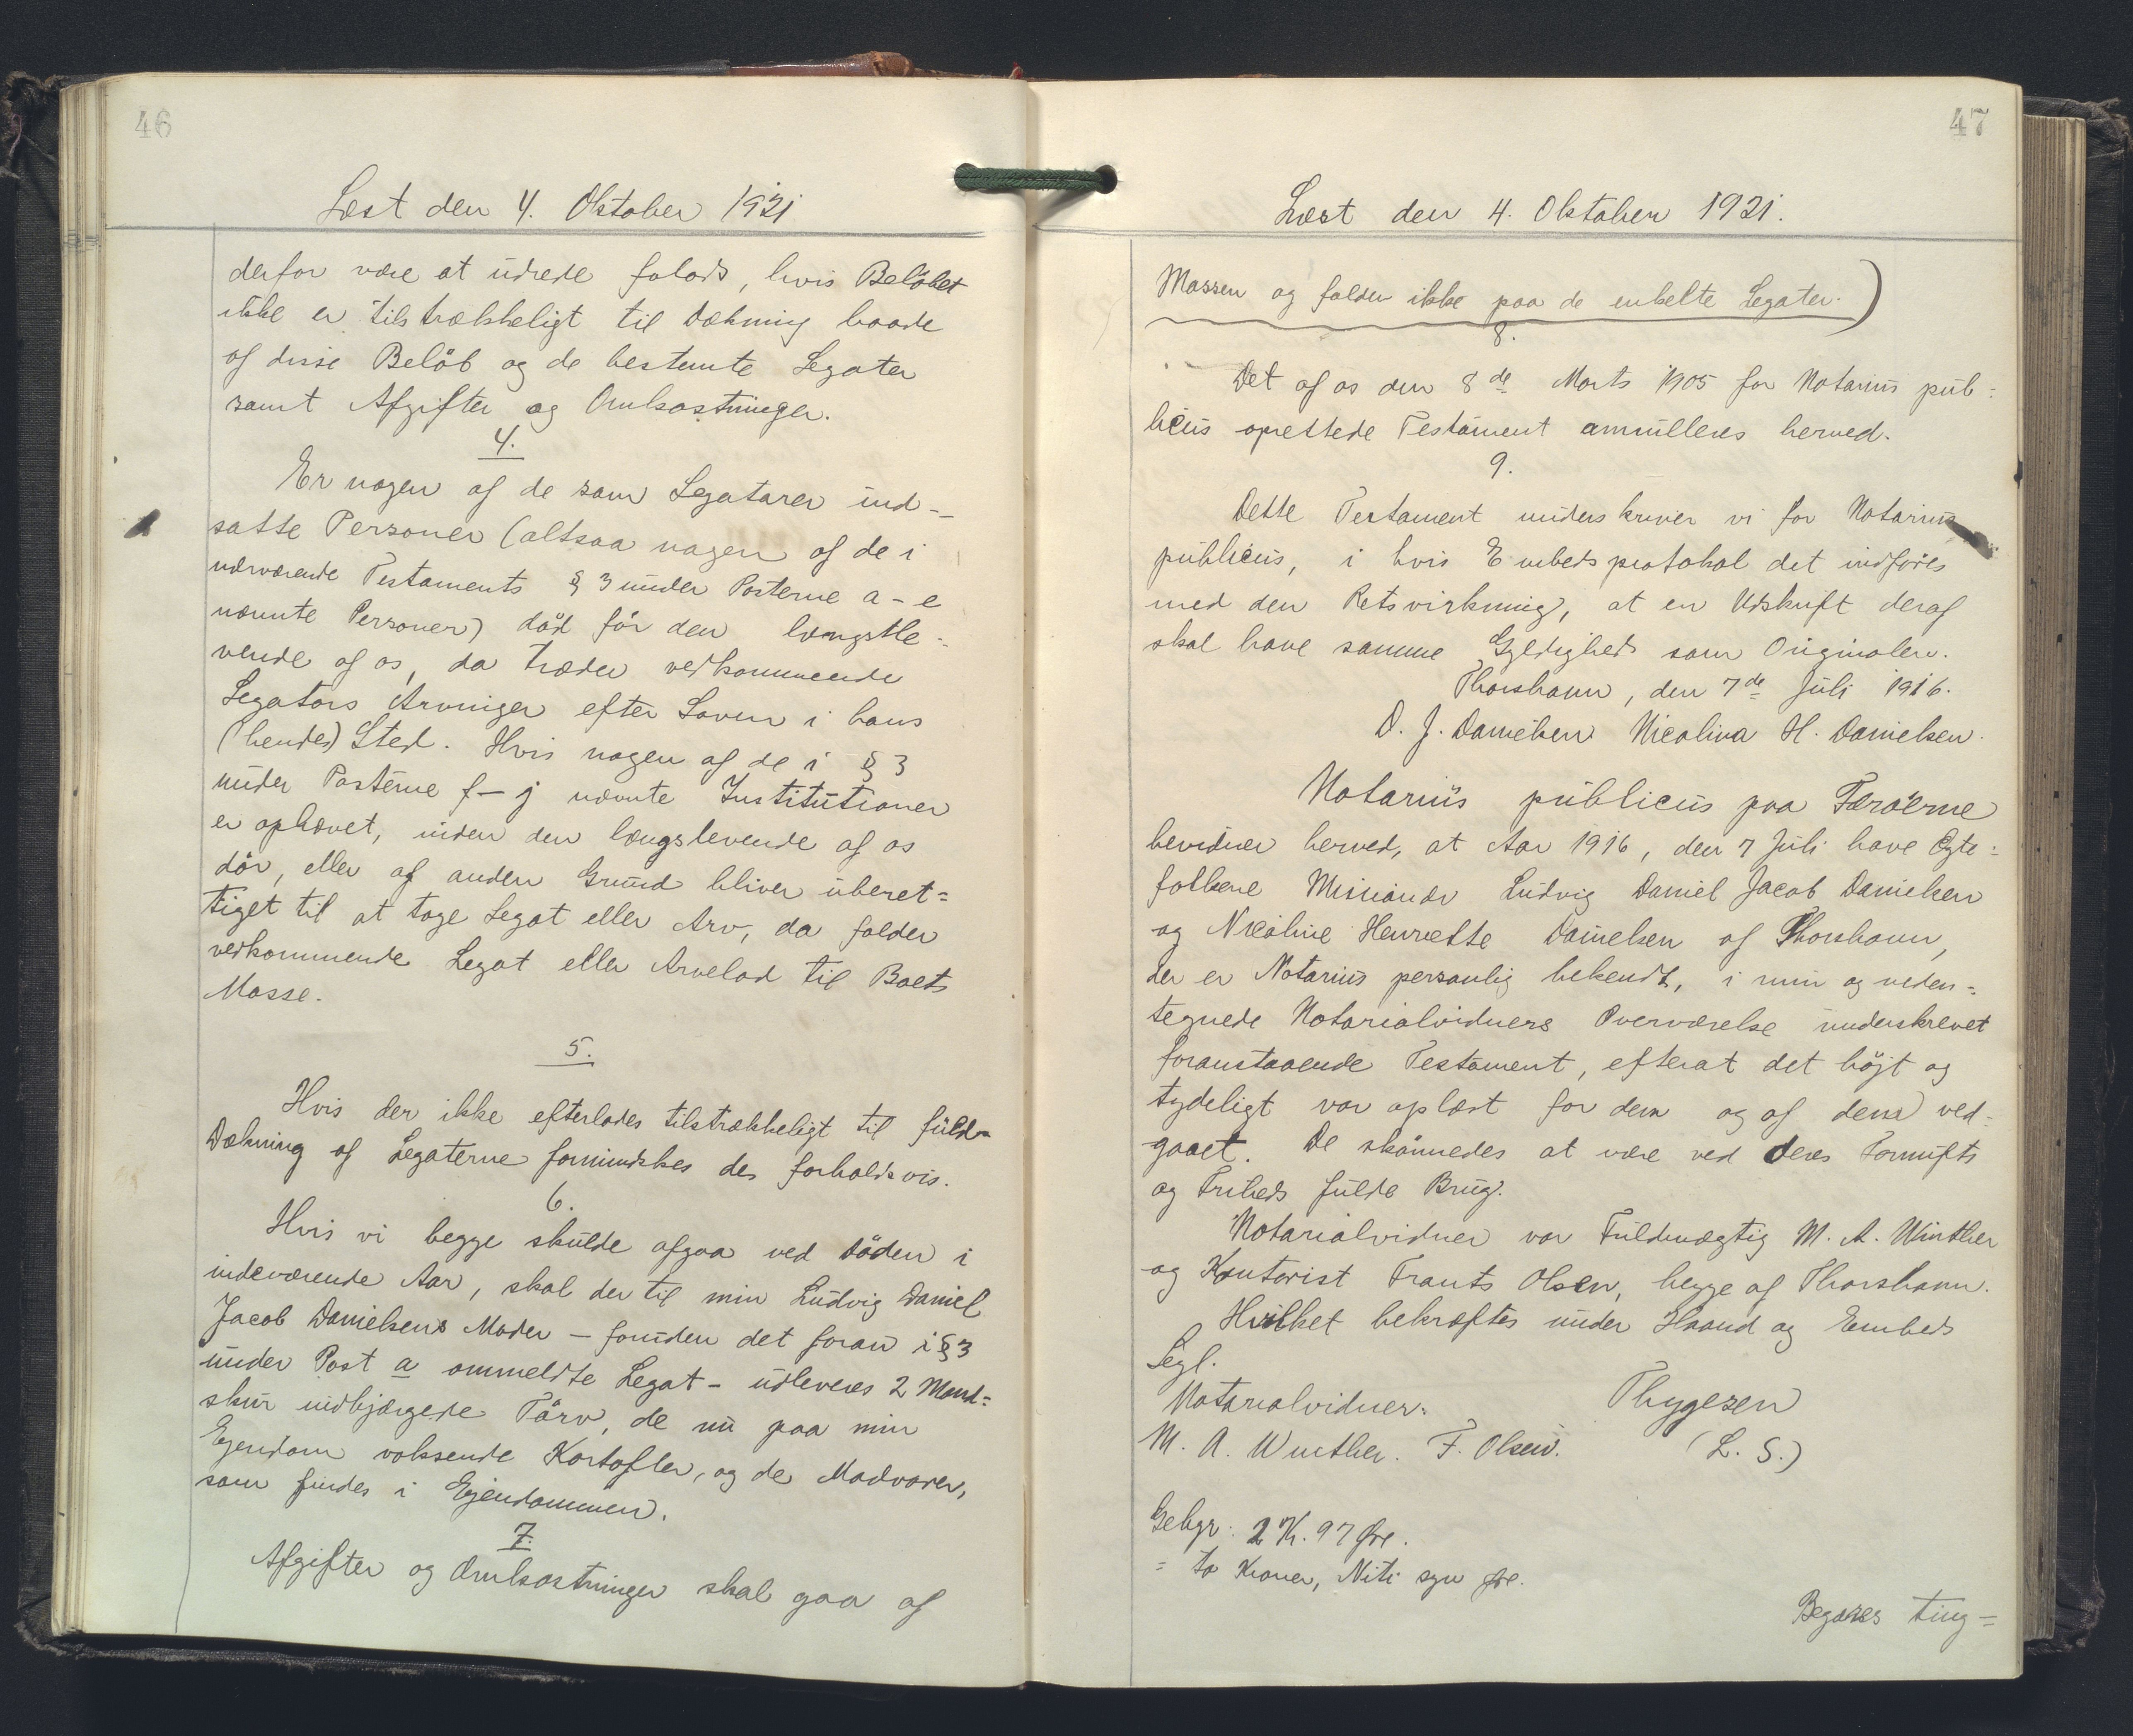 46
Læst den 4. Oktober 1921
derfor være at udrede forlods, hvis Beløbet
ikke er tilstrækkeligt til Dækning baade
af disse Beløb og de bestemte Legater
samt Afgifter og Omkostninger.
4.
Er nogen af de som Legatarer ind-
satte Personer (altsaa nogen af de i
nærværende Testaments § 3 under Posterne a-e
nævnte Personer) død før den længstle-
vende af os, da træder vedkommende
Legators Arvinger efter Loven i hans
(hendes) Sted. Hvis nogen af de i § 3
under Posterne f-j nævnte Institutioner
er ophævet, inden den længstlevende af os
dör, eller af anden Grund bliver uberet=
tiget til at tage Legat eller Arv, da falder
vedkommende Legat eller Arvelod til Boets
Masse.
5.
Hvis der ikke efterlades tilstrækkeligt til fuld
Dækning af Legaterne formindskes de forholdsvis.
6.
Hvis vi begge skulde afgaa ved Døden i
indeværende Aar, skal der til min Ludvig Daniel
Jacob Danielsens Moder – foruden det foran i § 3
under Post a ommeldte Legat – udleveres 2 Mand=
skur indbjærgede Törv, de nu paa min
Ejendom voksende Kartofler, og de Madvarer,
som findes i Ejendommen.
7.
Afgifter og Omkostninger skal gaa af
47
Læst den 4. Oktober 1921.
Massen og falder ikke paa de enkelte Legater.)
8.
Det af os den 8de Marts 1905 for Notarius pub=
licus oprettede Testament annulleres herved.
9.
Dette Testament underskriver vi for Notarius
publicus, i hvis Embedsprotokol det indføres
med den Retsvirkning, at en Udskrift deraf
skal have samme Gyldighed som Originalen.
Thorshavn, den 7de Juli 1916.
D. J. Danielsen Nicolina H. Danielsen.
Notarius publicus paa Færøerne
bevidner herved, at Aar 1916, den 7 Juli have Egte=
folkene Missionær Ludvig Daniel Jacob Danielsen
og Nicoline Henriette Danielsen af Thorshavn,
der er Notarius personlig bekendt, i min og neden=
tegnede Notarialvidners Overværelse underskrevet
foranstaaende Testament, efterat det højt og
tydeligt var oplæst for dem og af dem ved-
gaaet. De skønnedes at være ved deres Fornufts
og Friheds fulde Brug.
Notarialvidner var Fuldmægtig M. A. Winther
og Kontorist Frants Olsen, begge af Thorshavn.
Hvilket bekræftes under Haand og Embeds
Segl.
Notarialvidner: Thygesen
M. A. Winther. F. Olsen. (L. S.)
Gebyr: 2 K. 97 Øre.
= to Kroner, Niti syv Øre.
Begæres ting=